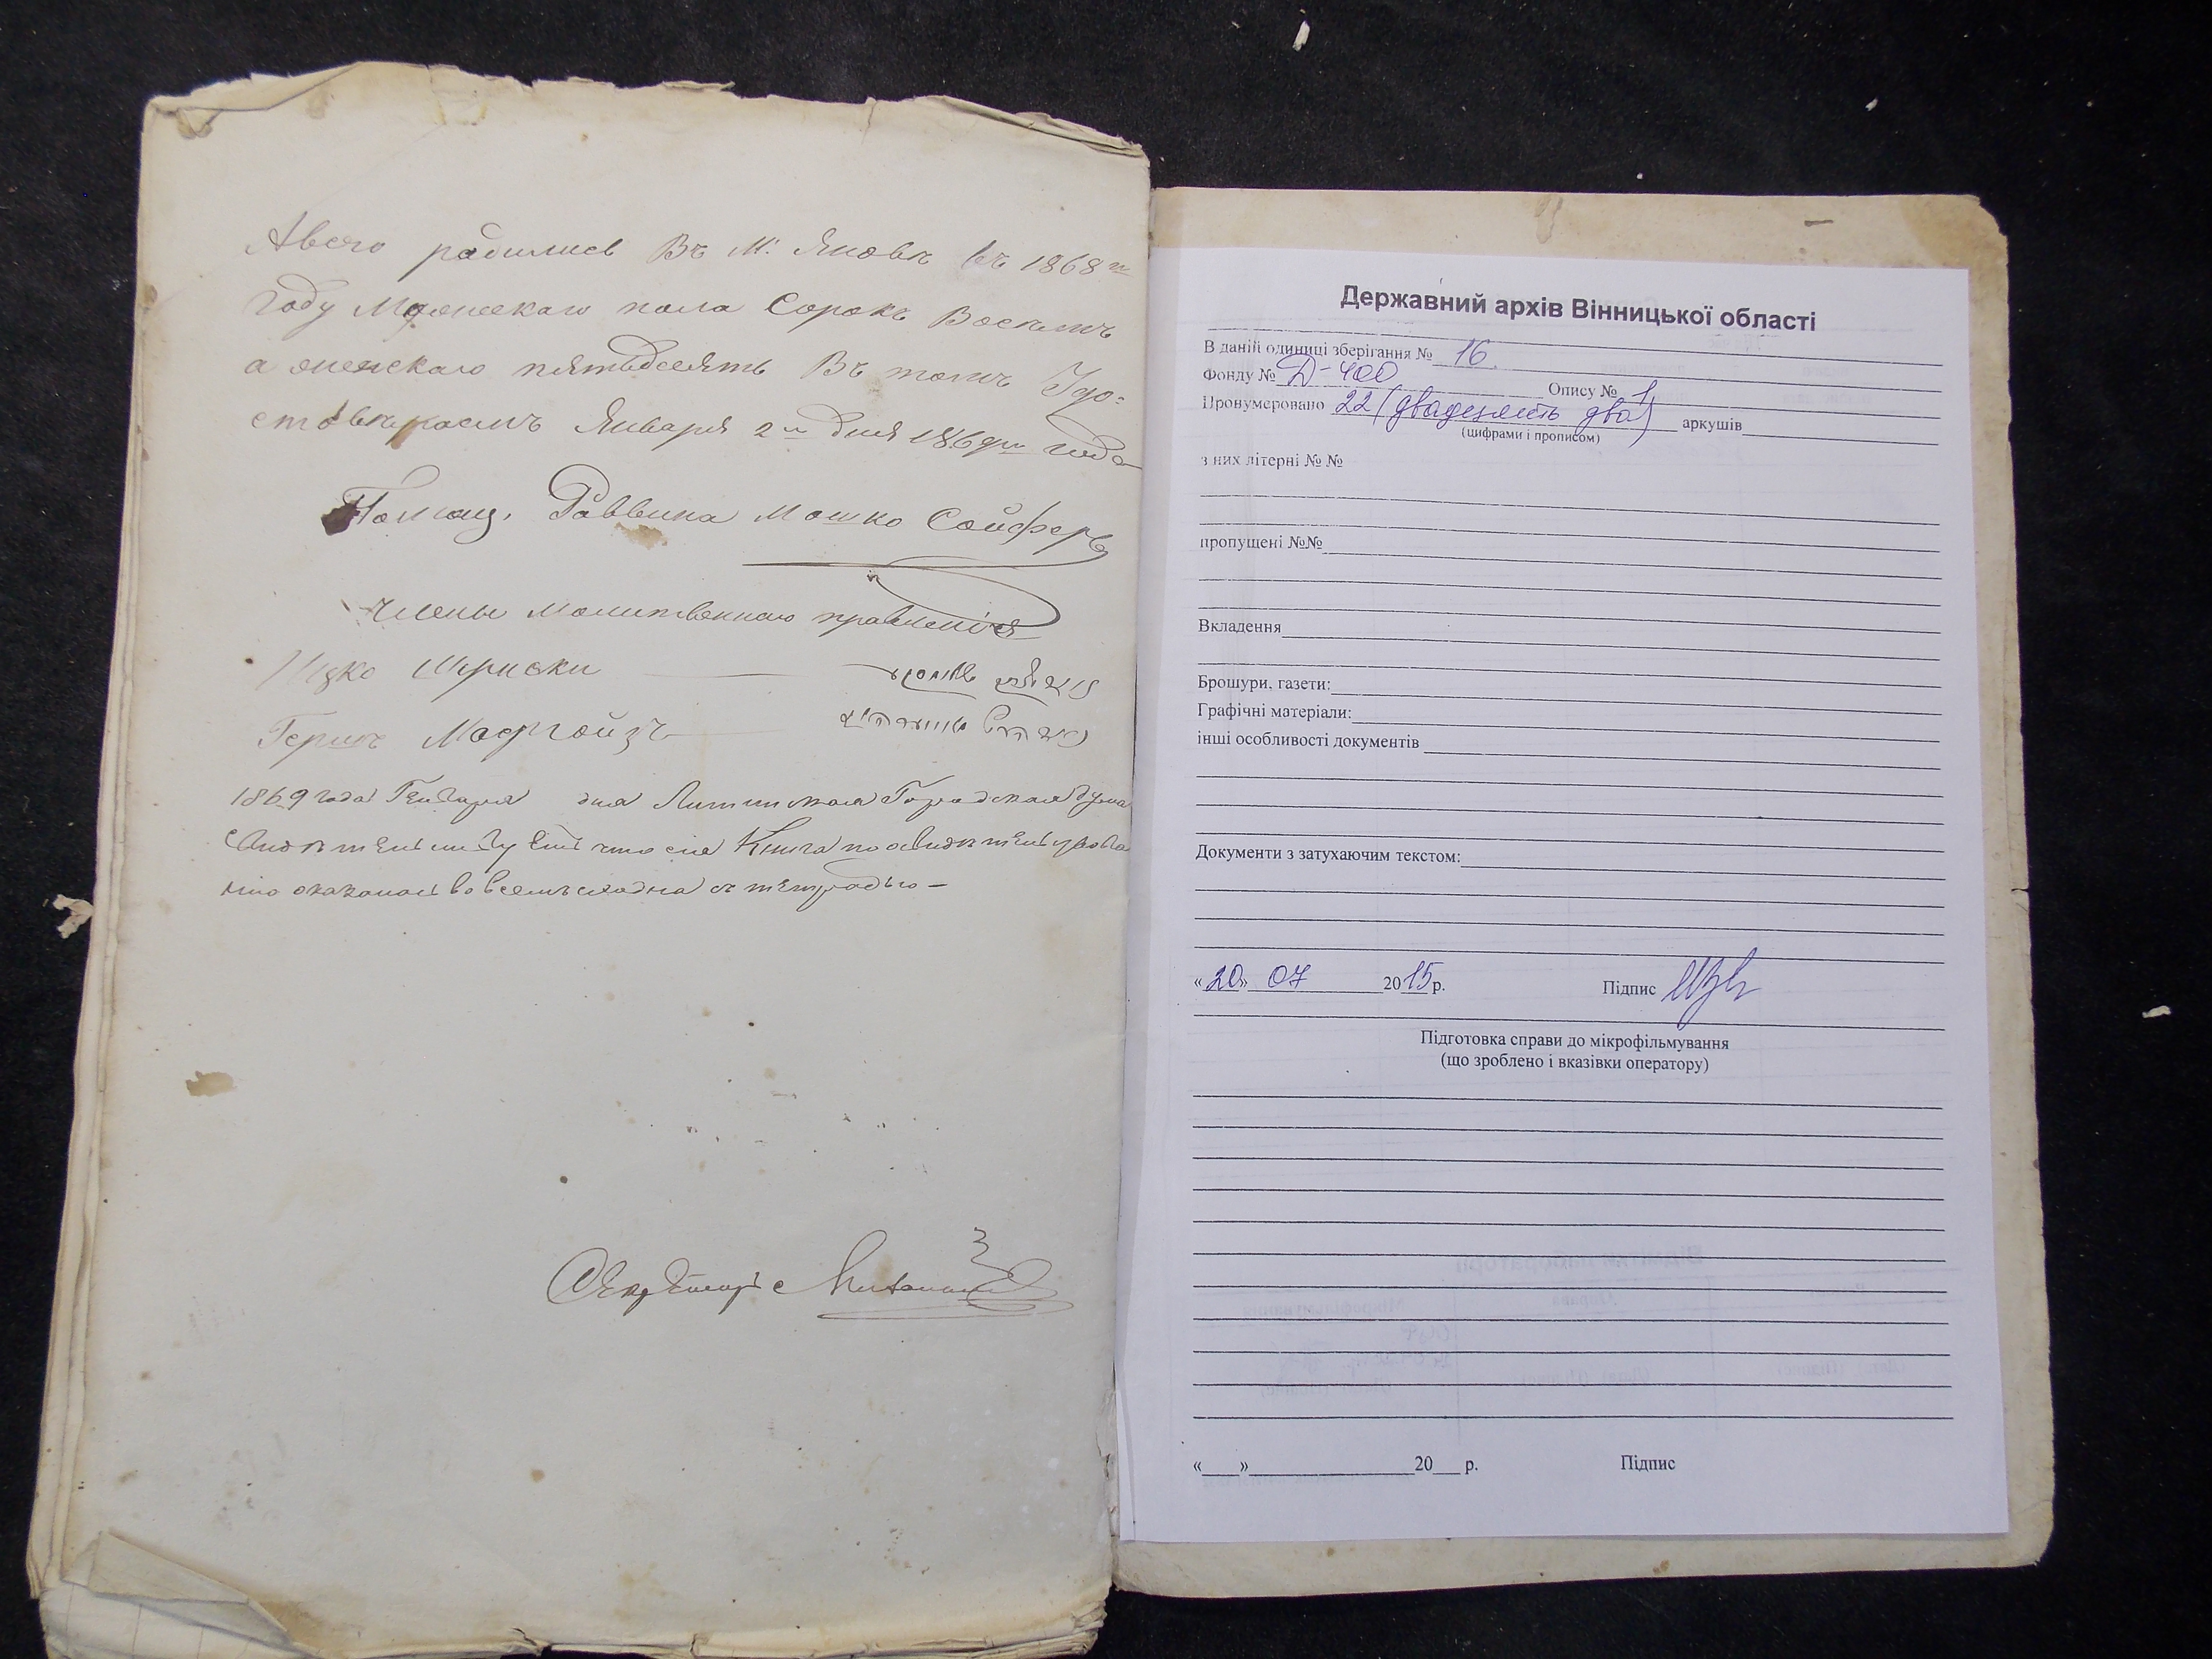 Авсего радились Въ М. Яновѣ Въ 1868 м
Году Мужескаго пола Сорокъ Восемъ
а женскаго пятьдсеять Въ томъ Удо-
стовѣраемъ Января 2го дня 1869го года
Помощ. Раввина Мошко Сойферъ
Члены Молитвеннаго правленія
Ицко
Гершъ
1869 года Генваря дня Литинская Городская Дума
Свидѣтельствуетъ что сія Книга по освидѣтельствова
нію оказалась во всемъ сходна съ тетрадью -
Секретарь
Державний архів Вінницької області
В даній одиниці зберігання № 16.
Фонду № Д-400 Опису № 1
Пронумеровано 22 (двадцять два) аркушів
(цифрами і прописом)
з них літерні № №
пропущені №№
Вкладення
Брошури, газети:
Графічні матеріали:
інші особливості документів
Документи з затухаючим текстом:
«20» 07 2015 р. Підпис
Підготовка справи до мікрофільмування
(що зроблено і вказівки оператору)
«___»______________20___ р. Підпис